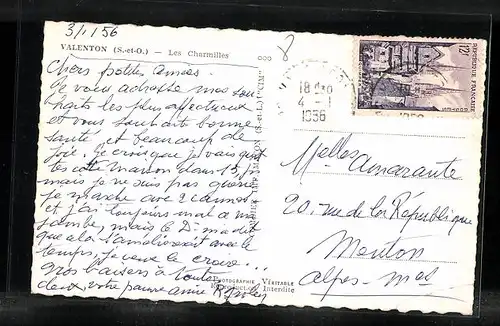 3/1/56
VALENTON (S.-et-O.) — Les Charmilles
Chères petites amies.
Je vous adresse mes sou
haits les plus affectueux
et vous souhaite bonne
santé et beaucoup de
joie. Je crois que je vais
côté dans 15 j
mais je ne suis pas
je marche avec 2 cannes
et j'ai toujours mal à ma
jambe, mais le Dr m'a dit
que cela s'améliorerait avec le
temps, je veux le croire...
gros baisers à toutes
deux votre pauvre amie
PHOTOGRAPHIE VÉRITABLE
Interdite
18 H30
4 - 1
1956
12F
REPUBLIQUE FRANÇAISE
Melles Amarante
20, rue de la République
Menton
Alpes-Mmes